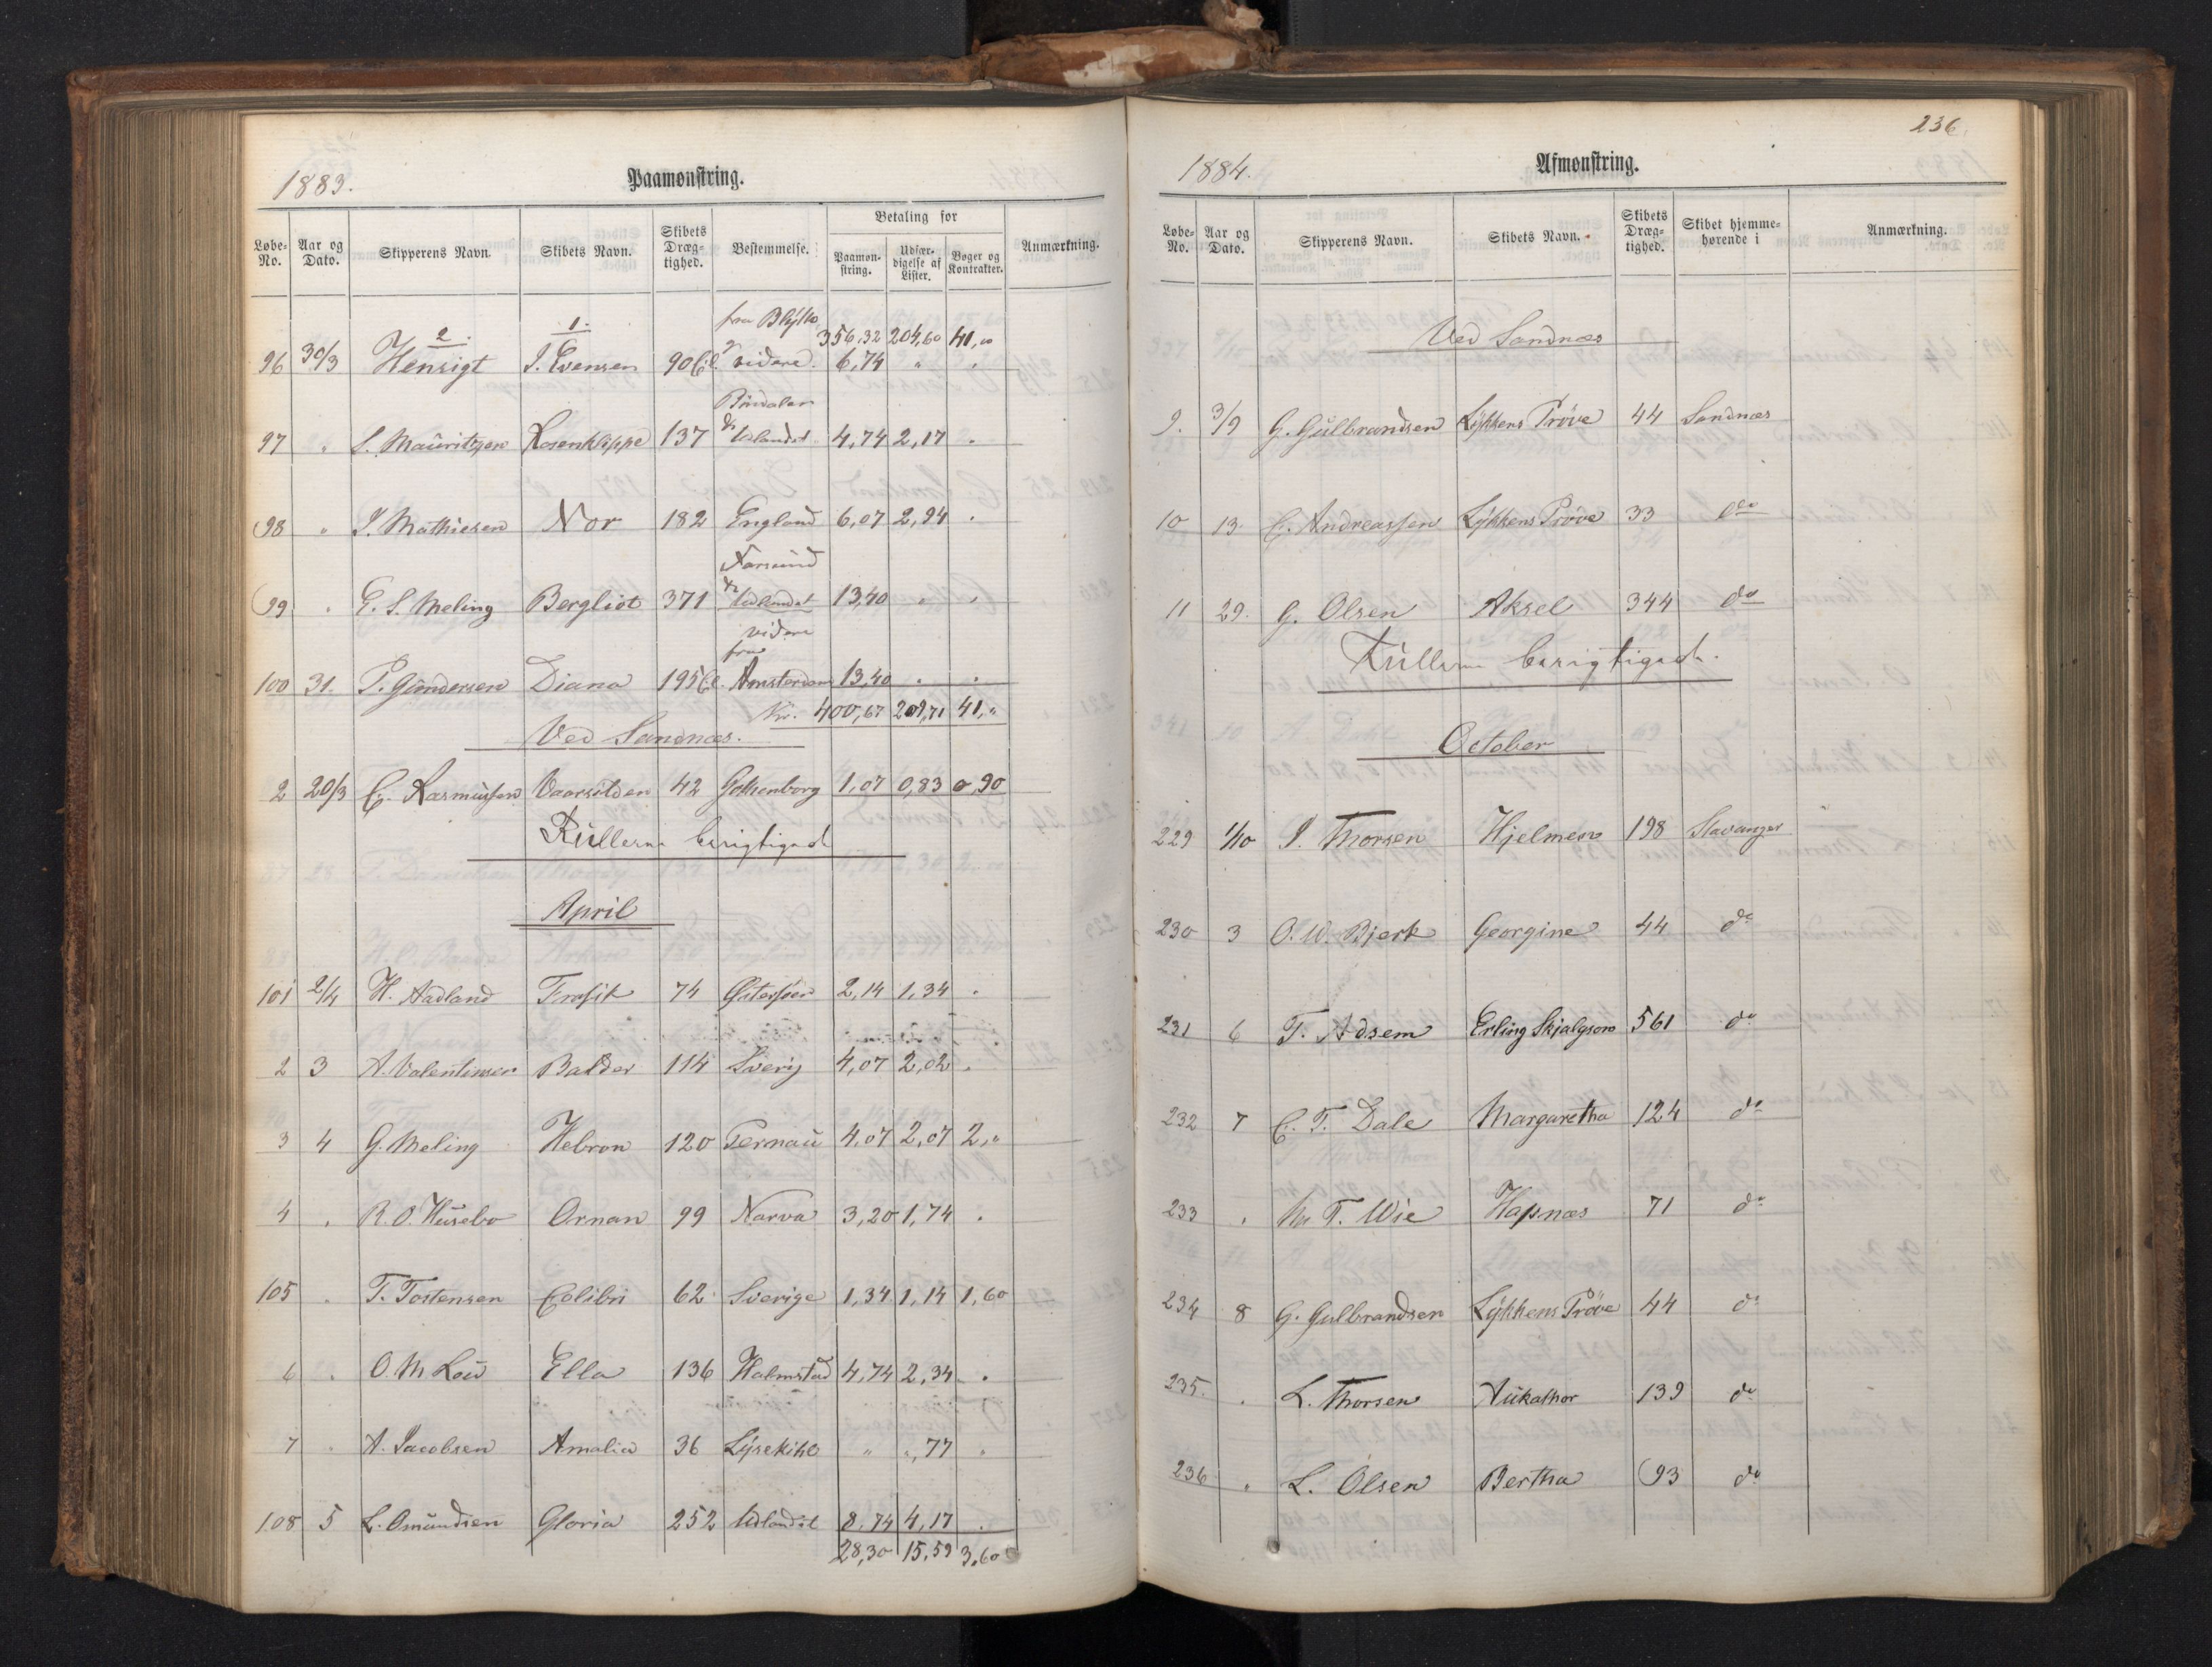 1883.
Paamønstring.
Løbe-No. Aar og Dato. Skipperens Navn. Skibets Navn. Skibets Dræg-tighed. Bestemmelse. Betaling for Paamøn-string. Udfær-digelse af Lister. Bøger og Kontrakter. Anmærkning.
2. 1. fra 356,32 204,60 41,00
96 30/3 Hensigt I. Evensen 90 Cl. videre. 6,74 " "
97 " S. Mauritzen Rosenklippe 137 Udlandet 4,74 2,17 "
98 " I. Mathiesen Nor 182 England 6,07 2,94 "
Farsund
99 " E. S. Meling Bergliot 371 Udlandet 13,40 " "
videre
fra
100 31. P. Gundersen Diana 195 Cl. Amsterdam 13,40 " "
Kr. 400,67 209,71 41,"
Ved Sandnæs.
2 20/3 C. Rasmussen Vaarsilden 42 Gothenborg 1,07 0,83 0,90
Rullerne berigtiget
April
101 2/4 H. Aadland Trofik 74 Østersøen 2,14 1,34 "
2 3 A. Valentinsen Balder 114 Sverig 4,07 2,02 "
3 4 G. Meling Hebron 120 Pernau 4,07 2,07 2,"
4 " R. O. Husebo Ornan 99 Narva 3,20 1,74 "
105 " T. Tostensen Colibri 62 Sverige 1,34 1,14 1,60
6 " O. M. Ella 136 Halmstad 4,74 2,34 "
7 " A. Jacobsen Amalia 36 Lysekihl " ",77 "
108 5 L. Omundsen Gloria 252 Udlandet 8,74 4,17 "
28,30 15,59 3,60
236.
1884.
Afmønstring.
Løbe-No. Aar og Dato. Skipperens Navn. Skibets Navn. Skibets Dræg-tighed. Skibet hjemme-hørende i Anmærkning.
Ved Sandnæs
9. 3/9 G. Gulbrandsen Lykkens Prøve 44 Sandnæs
10 13. C. Andreassen Lykkens Prøve 33 do
11 29. G. Olsen Aksel 344 do
Rullerne berigtiget.
October
229 1/10 I. Thorsen Hjelmen 198 Stavanger
230 3 O. W. Bjerk Georgine 44 do
231 6 T. Adsem Erling Skjalgson 561 do
232 7 C. T. Dale Margaretha 124 do
233 " T. Wie Hapnæs 71 do
234 8 G. Gulbrandsen Lykkens Prøve 44 do
235. " L. Thorsen Aukathor 139 do
236 " L. Olsen Bertha 93 do